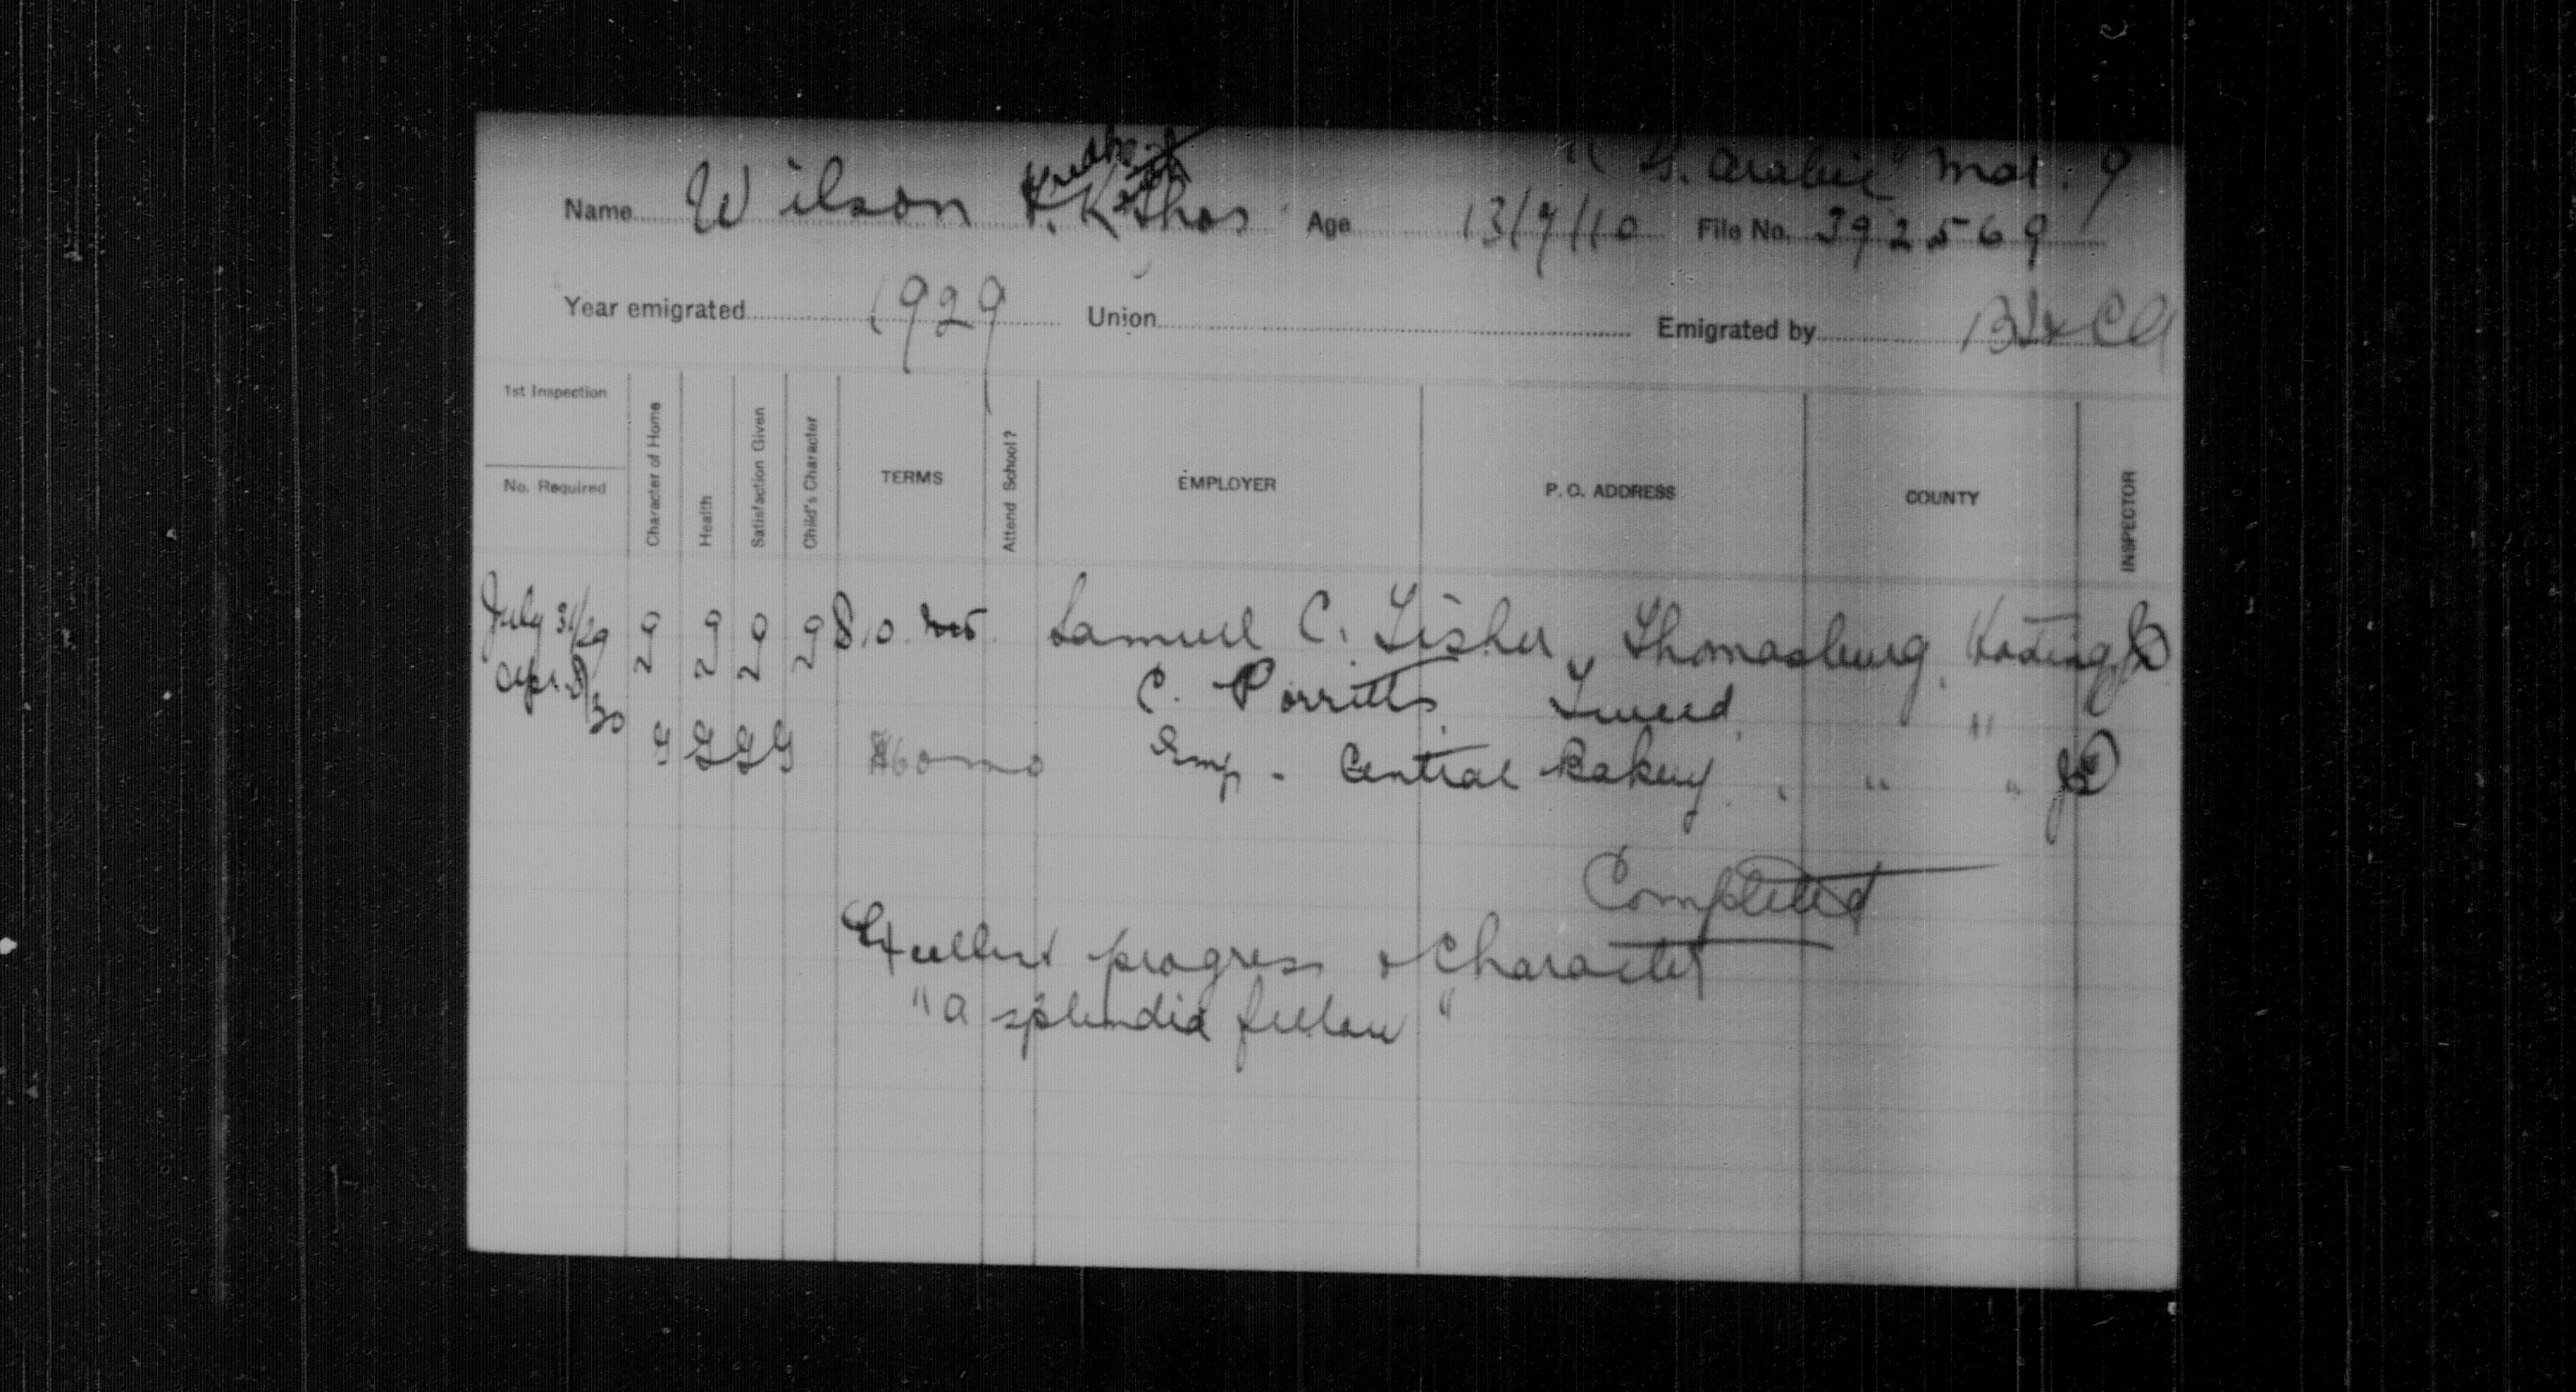 S.S. Arabic Mar. 9
Name Wilson F. K. Thos Age 13/7/10 File No. 392569
Year emigrated 1929 Union Emigrated by
1st Inspection
No. Required
Character of Home
Health
Satisfaction Given
Child's Character
TERMS
Attend School?
EMPLOYER
P. O. ADDRESS
COUNTY
INSPECTOR
July 31/29 g g g g 10 Samuel C. Fisher, Thomasburg, Hastings
Apr. 8/30 C. Porritts, Tweed, "
G G G G 60 mo Emp - Central Bakery, " "
Completed
Excellent progress & Character
"a splendid fellow"